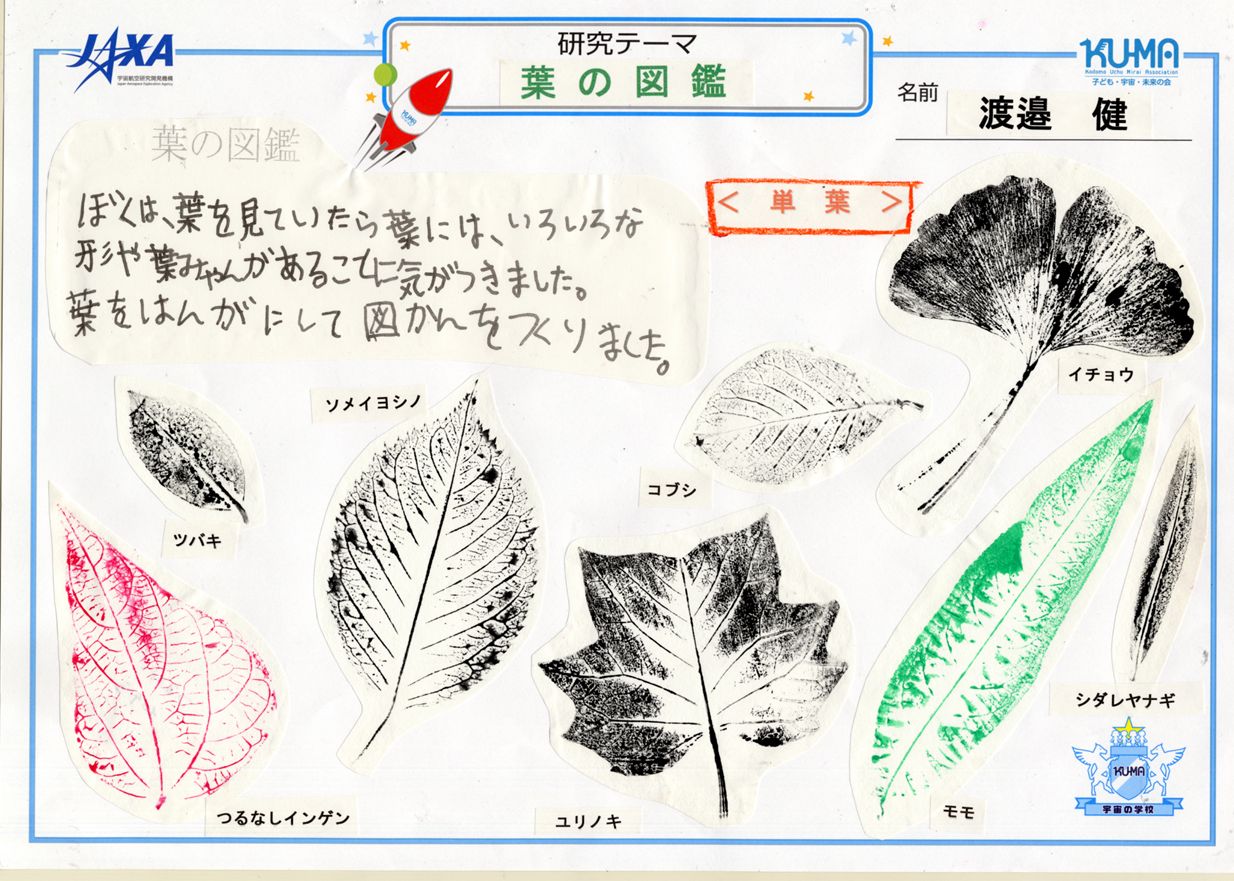 JAXA
宇宙航空研究開発機構
Japan Aerospace Exploration Agency
研究テーマ
葉の図鑑
KU-MA
Kodomo Uchu Mirai Association
子ども・宇宙・未来の会
名前
渡邉 健
葉の図鑑
ぼくは、葉を見ていたら葉には、いろいろな
形や葉みゃんがあることに気がつきました。
葉をはんがにして図かんをつくりました。
<単葉>
KU-MA
イチョウ
ソメイヨシノ
コブシ
ツバキ
シダレヤナギ
つるなしインゲン
ユリノキ
モモ
KU-MA
宇宙の学校